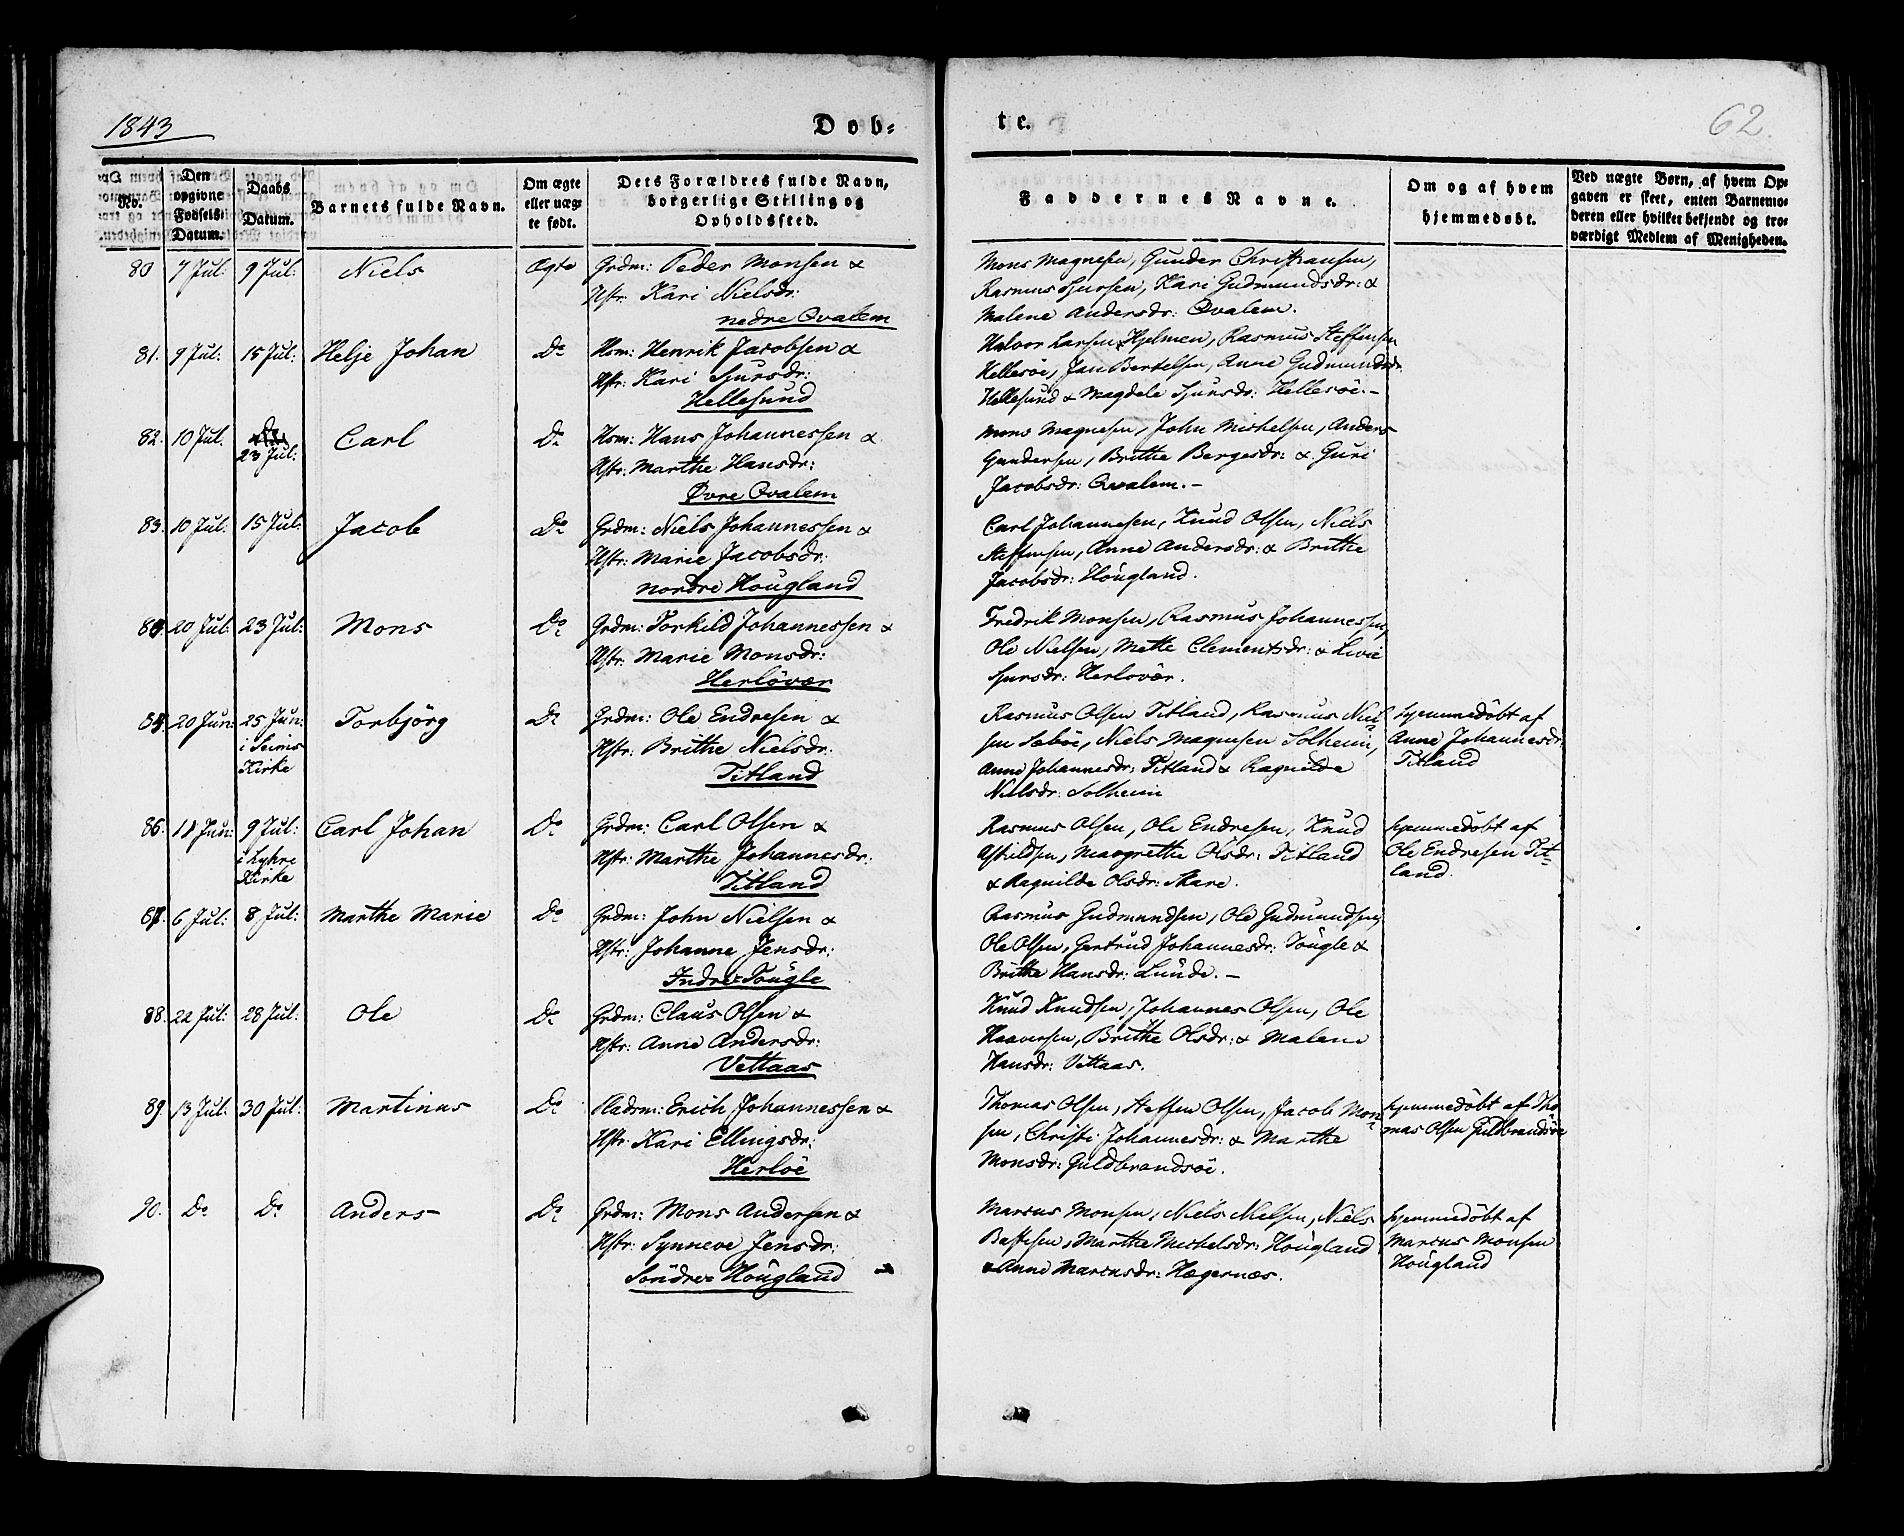 1843
Døb=
te.
62.
No.
Den opgivne Fødsels Datum.
Daabs Datum.
Barnets fulde Navn.
Om ægte eller uægte født.
Dets Forældres fulde Navn, borgerlige Stilling og Opholdssted.
Faddernes Navne.
Om og af hvem hjemmedøbt.
Ved uægte Børn, af hvem Opgaven er skeet, enten Barnemoderen eller hvilket bekjendt og troværdigt Medlem af Menigheden.
80 7 Jul: 9 Jul: Niels Ægte Grdm: Peder Monsen &
Hstr: Kari Nielsdr:
nedre Qvalem
Mons Magnesen, Gunder Christiansen,
Rasmus Sjursen, Kari Gudmundsdr: &
Malene Andersdr: Qvalem.
81. 9 Jul: 15 Jul: Helje Johan Do Hsm: Henrik Jacobsen &
Hstr: Kari Sjursdr:
Hellesund
Halvor Larsen Hjelmen, Rasmus Steffensen
Hellesöe, Jan Bertelsen, Anne Gudmundsdr
Hellesund & Magdele Sjursdr: Hellesöe.-
82. 10 Jul: 23 Jul: Carl Do Hsm: Hans Johannessen &
Hstr: Marthe Hansdr:
Øvre Qvalem
Mons Magnesen, John Michelsen, Anders
Gundersen, Brithe Bergesdr: & Guri
Jacobsdr: Qvalem.-
83. 10 Jul: 15 Jul: Jacob Do Grdm: Niels Johannessen &
Hstr: Marie Jacobsdr:
nordre Hougland
Carl Johannesen, Knud Olsen, Niels
Steffensen, Anne Andersdr: & Brithe
Jacobsdr: Hougland.
84. 20 Jul: 23 Jul: Mons Do Grdm: Torkild Johannessen &
Hstr: Marie Monsdr:
Herlövær
Fredrik Monsen, Rasmus Johannessen,
Ole Nielsen, Mette Clementsdr: &
Sjursdr: Herlövær.
85. 20 Jun: 25 Jun: Torbjörg Do Grdm: Ole Endresen &
i Seims
Kirke
Hstr: Brithe Nielsdr:
Titland
Rasmus Olsen Titland, Rasmus Niel
sen Sæböe, Niels Magnesen Solheim,
Anne Johannesdr: Titland & Ragnilde
Nielsdr: Solheim
Hjemmedöbt af
Anne Johannesdr:
Titland
86. 11 Jun: 9 Jul: Carl Johan Do Grdm: Carl Olsen &
i Lyhre
Kirke
Hstr: Marthe Johannesdr:
Titland
Rasmus Olsen, Ole Endresen, Knud
Margrethe Olsdr: Titland
& Ragnilde Olsdr: Skare.
Hjemmedöbt af
Ole Endresen Tit-
land.
87. 6 Jul: 8 Jul: Marthe Marie Do Grdm: John Nielsen &
Hstr: Johanne Jensdr:
Indre Tougle
Rasmus Gudmundsen, Ole Gudmundsen,
Ole Olsen, Gertrud Johannesdr: Tougle &
Brithe Hansdr: Lunde.-
88. 22 Jul: 28 Jul: Ole Do Grdm: Claus Olsen &
Hstr: Anne Andersdr:
Vettaas
Knud Knudsen, Johannes Olsen, Ole
Haaversen, Brithe Olsdr: & Malene
Hansdr: Vettaas.
89. 13 Jul: 30 Jul: Martinus Do Pladsm: Erich Johannessen &
Hstr: Kari Ellingsdr:
Herlöe
Thomas Olsen, Steffen Olsen, Jacob Mon
sen, Christi Johannesdr: & Marthe
Monsdr: Guldbrandsöe.
Hjemmedöbt af Tho
mas Olsen Guldbrandsöe
90. Do Do Anders Do Grdm: Mons Andersen &
Hstr: Synneve Jensdr:
Söndre Hougland
Marcus Monsen, Niels Nielsen, Niels
Marthe Michelsdr: Hougland
& Anne Marcusdr: Hægernæs.
Hjemmedöbt af
Marcus Monsen
Hougland